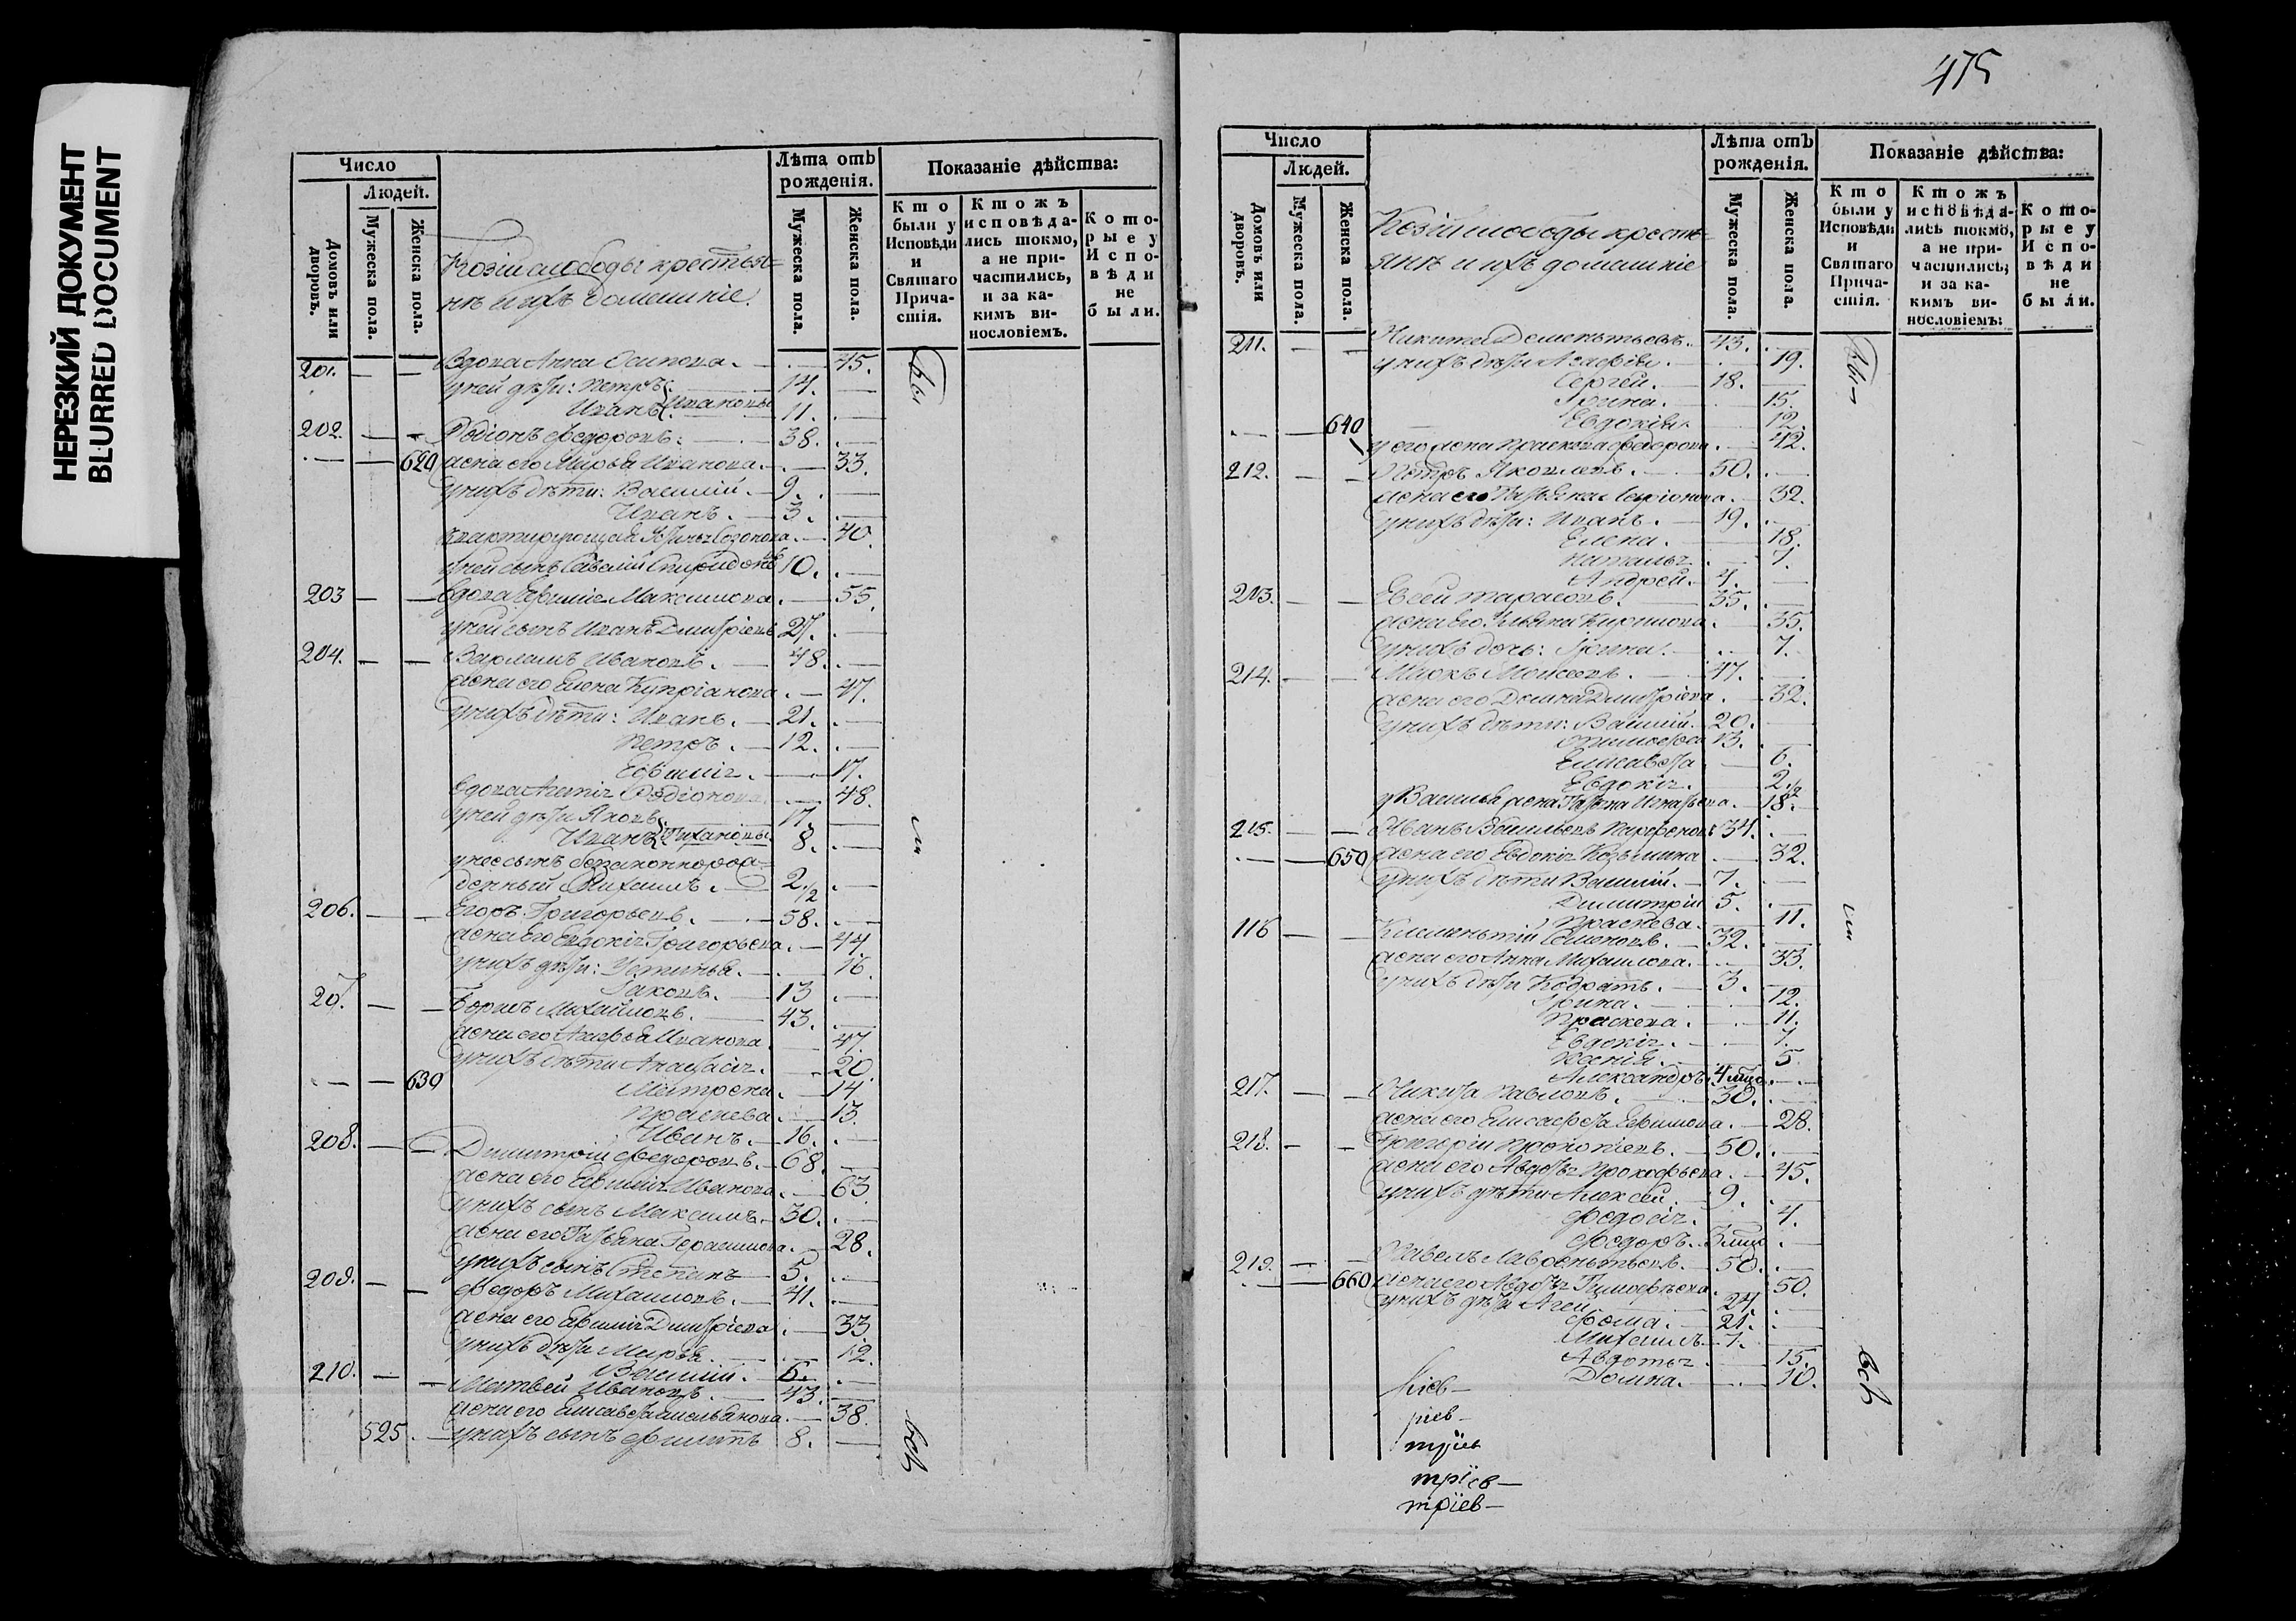 НЕРЕЗКИЙ ДОКУМЕНТ
BLURRED DOCUMENT
Число
Людей.
Домовъ или дворовъ.
Мужеска пола.
Женска пола.
слободы крестья-
нъ и ихъ домашніе.
Лѣта отъ рожденія.
Мужеска пола.
Женска пола.
Показаніе дѣйства:
Кто были у Исповѣди и Святаго Прича-стія.
Ктожъ исповѣда-лись токмо, а не при-частились, и за ка-кимъ ви-нословіемъ.
Кото-рые у Испо-вѣди не были.
201. — — Вдова Анна Осипова. — 45.
у ней дѣти: Петръ 14.
Иванъ Ивановы 11.
202. — — Родіонъ Федоровъ. — 38.
620 жена его Марья Иванова. — 33.
у нихъ дѣти: Василій. — 9.
Иванъ. — 3.
40.
у ней сынъ Спиридоновъ 10.
203 — — вдова Ефимія Максимова. — 55.
у ней сынъ Иванъ Дмитріевъ 27.
204. — — Варламъ Ивановъ. — 48.
жена его Елена Купріанова. — 47.
у нихъ дѣти: Иванъ. — 21.
Петръ. — 12.
Ефимія. — 17.
вдова Родіонова. 48.
у ней дѣти Яковъ 17.
Иванъ 8.
у нее сынъ незаконнорож-
денный Михаилъ. 2 1/2
206. — — Егоръ Григорьевъ. — 58.
жена его Евдокія Григорьева. — 44
у нихъ дѣти: Устинья. — 16.
Іаковъ. — 13
207. — — Борисъ Михайловъ. 43.
жена его Иванова. 47.
у нихъ дѣти Анастасія. — 20.
630 Матрона. — 14.
Праскева. — 13.
Иванъ. — 16.
208. — Димитрій Федоровъ. — 68.
жена его Ефимія Иванова. — 63
у нихъ сынъ Максимъ. — 30.
жена его Татьяна Герасимова. — 28.
у нихъ сынъ Степанъ 5.
209. — — Федоръ Михаиловъ. — 41.
жена его Ефимія Дмитріева. — 33.
у нихъ дѣти Марья. — 12.
Василій. — 6.
210. — — Матвей Ивановъ. — 43.
жена его Елисавета Емельянова. — 38.
525. — у нихъ сынъ Филипъ 8.
бы
ли
всѣ
475
Число
Людей.
Домовъ или дворовъ.
Мужеска пола.
Женска пола.
слободы кресть-
янъ и ихъ домашніе
Лѣта отъ рожденія.
Мужеска пола.
Женска пола.
Показаніе дѣйства:
Кто были у Исповѣди и Святаго Прича-стія.
Ктожъ исповѣда-лись токмо, а не при-частились, и за ка-кимъ ви-нословіемъ:
Кото-рые у Испо-вѣди не были.
211. — — Никита Дементьевъ. 43.
у нихъ дѣти Агафія. — 19.
Сергей. — 18.
Ірина. — 15.
Евдокія. 12.
640 у его жена Праскева Федорова. — 42.
212. — — Петръ Яковлевъ. — 50.
жена его Татьяна 32.
у нихъ дѣти: Иванъ. — 19.
Елена. — 18.
Наталья — 7.
Андрей. — 4.
213. — — Евсей Тарасовъ. 35.
жена его Ульяна Кирилова. — 35.
у нихъ дочь: Ірина. — 7.
214. — — Маркъ Моисеевъ. — 47.
жена его Домна Дмитріева. — 32.
у нихъ дѣти: Василій. 20.
Тимофей 13.
Елисавета — 6.
Евдокія. — 2 1/2
у Василья жена Игнатьева. — 18.
215. — — Иванъ Васильевъ 34.
650 жена его Евдокія Козьмина — 32.
у нихъ дѣти Василій. — 7.
Димитрій 5.
Праскева. 11.
116 — — Климентій Семеновъ. — 32.
жена его Анна Михаилова. — 33.
у нихъ дѣти Кодратъ. — 3.
Ірина. — 12.
Праскева. — 11.
Евдокія. — 7.
Ксенія. — 5.
Александръ. 4
217. — — Никита Павловъ. 30.
жена его Елисафета Ефимова. — 28.
218. — — Григорій Прокопіевъ. — 50.
жена его Авдотья Прокофьева. — 45.
у нихъ дѣти Алексей. — 9.
Федосія. 4.
Федоръ. 3
219. — — Павелъ Лаврентьевъ. — 50.
660 жена его Авдотья Тимофѣева. 50.
у нихъ дѣти 24.
Фома. — 21.
Михаилъ — 7.
Авдотья — 15.
Домна. — 10.
бы-
ли
всѣ
Кіев-
ріев-
тріев
тріев-
тріев-